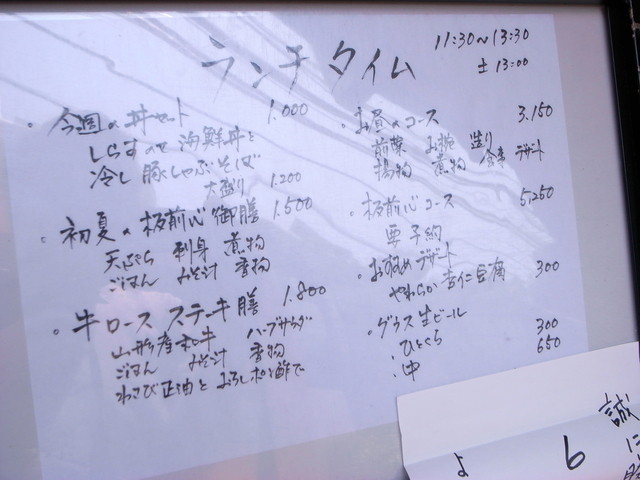 ランチタイム
11:30〜13:30
土 13:00
・今週の丼セット 1.000
しらすのせ海鮮丼と
冷し豚しゃぶそば
大盛り 1.200
・初夏の板前心御膳 1.500
天ぷら 刺身 煮物
ごはん みそ汁 香物
・牛ロースステーキ膳 1.800
山形産和牛 ハーブサラダ
ごはん みそ汁 香物
わさび正油とおろしポン酢で
・お昼のコース 3.150
前菜 お椀 造り
揚物 煮物 食事 デザート
・板前心コース 5,250
要予約
・お奨めデザート
やわらか杏仁豆腐 300
・グラス生ビール
・ひとくち 300
・中 650
誠に
よ
6